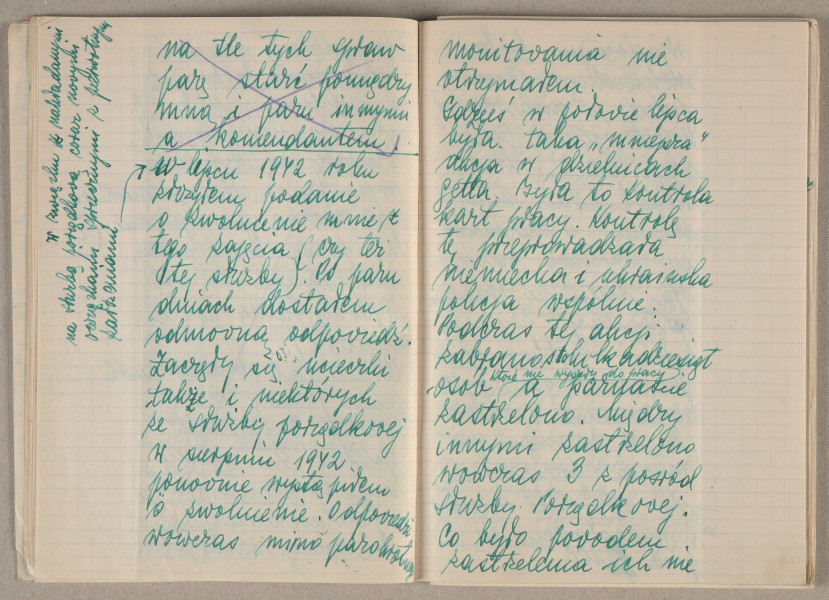 w związku z nakładanymi
na służbę porządkową coraz nowymi
obowiązkami sprzecznymi z pierwotnymi
założeniami
na tle tych spraw
parę starć pomiędzy
mną i paru innymi
a komendantem.
w lipcu 1942 roku
złożyłem podanie
o zwolnienie mnie z
tego zajęcia (czy też
tej służby). Po paru
dniach dostałem
odmowną odpowiedź.
Zaczęły się ucieczki
także i niektórych
ze służby porządkowej
w sierpniu 1942
ponownie wystąpiłem
o zwolnienie. Odpowiedzi
wówczas mimo parokrotnego
monitowania nie
otrzymałem.
Gdzieś w połowie lipca
była taka „mniejsza"
akcja w dzielnicach
getta. Była to kontrola
kart pracy. Kontrolę
tę przeprowadzała
niemiecka i ukraińska
policja wspólnie.
Podczas tej akcji
zabrano kilkadziesiąt
osób które nie wyszły do pracy
a paręnaście
zastrzelono. Między
innymi zastrzelono
wówczas 3 z pośród
służby Porządkowej.
Co było powodem
zastrzelenia ich nie